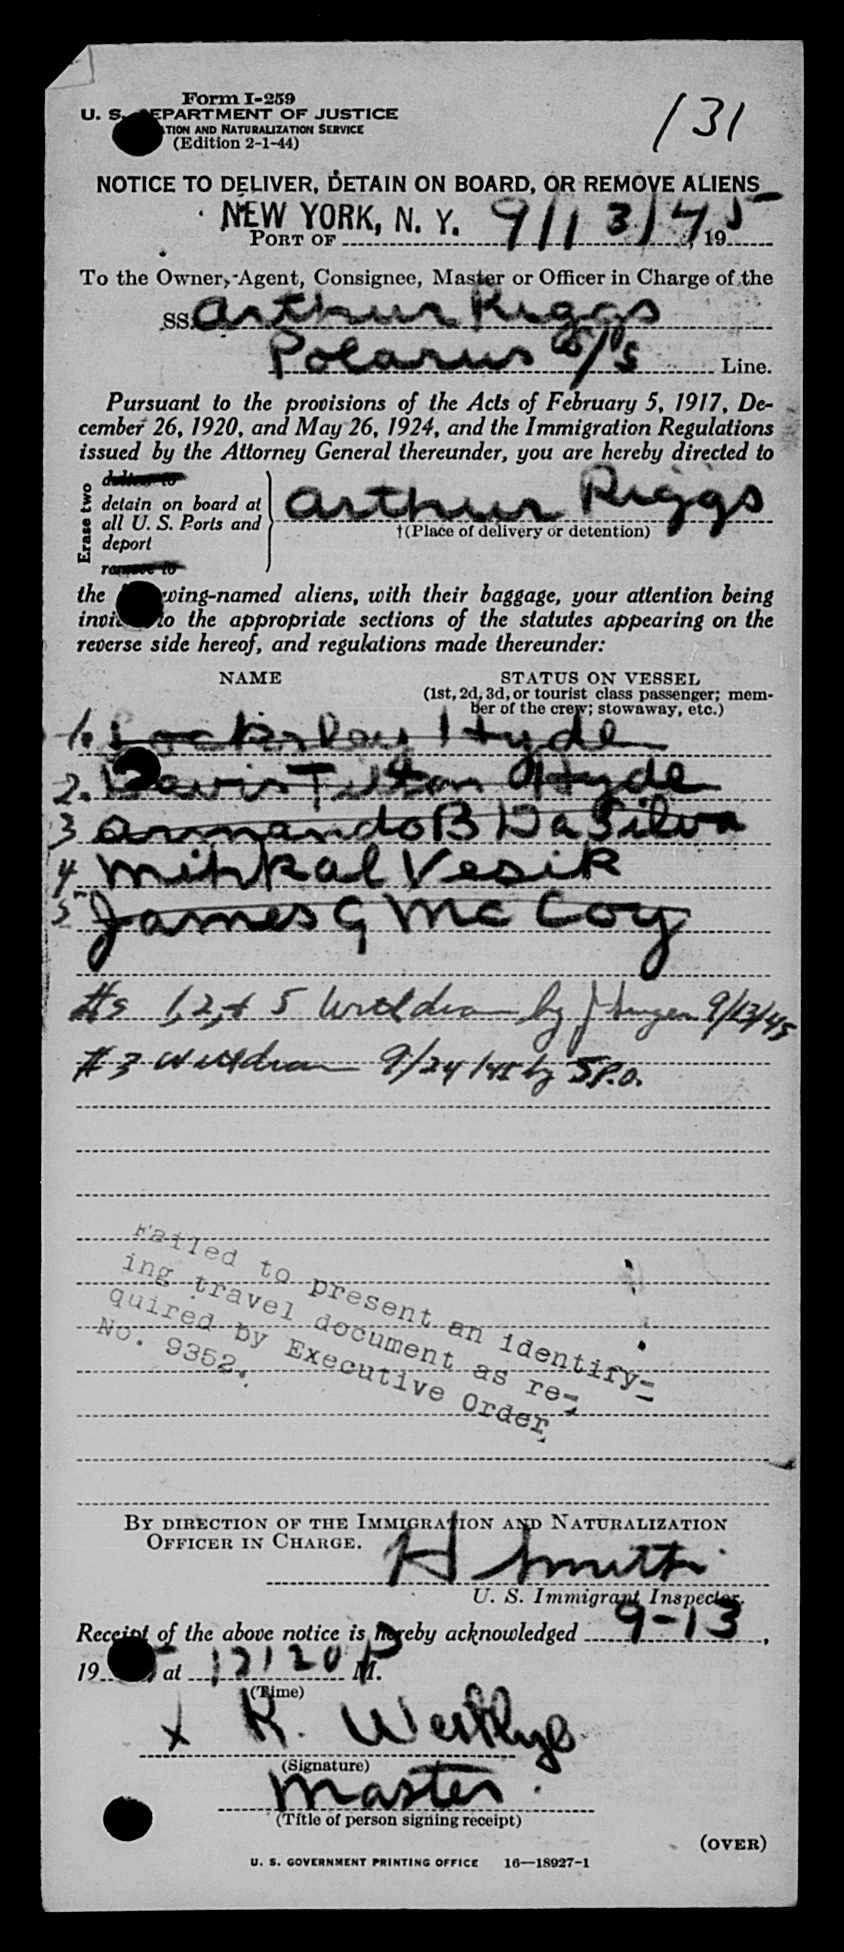 Form I-259
U. S. DEPARTMENT OF JUSTICE
TION AND NATURALIZATION SERVICE
(Edition 2-1-44)
131
NOTICE TO DELIVER, DETAIN ON BOARD, OR REMOVE ALIENS
NEW YORK, N. Y. 9/13/45
PORT OF , 19
To the Owner, Agent, Consignee, Master or Officer in Charge of the
SS. Arthur Riggs
Polarus S/S Line.
Pursuant to the provisions of the Acts of February 5, 1917, De-
cember 26, 1920, and May 26, 1924, and the Immigration Regulations
issued by the Attorney General thereunder, you are hereby directed to
Erase two
deliver to
detain on board at
all U. S. Ports and
deport
remove to
Arthur Riggs
†(Place of delivery or detention)
the wing-named aliens, with their baggage, your attention being
invi to the appropriate sections of the statutes appearing on the
reverse side hereof, and regulations made thereunder:
NAME STATUS ON VESSEL
(1st, 2d, 3d, or tourist class passenger; mem-
ber of the crew; stowaway, etc.)
1. Locksley Hyde
2. Davis Tilton Hyde
3 Armando B DaSilva
4 Mihkal Vesik
5 James G McCoy
#s 1, 2, + 5 Withdrawn by J 9/13/45
#3 Withdrawn 9/24/45 by S.P.O.
Failed to present an identify-
ing travel document as re-
quired by Executive Order
No. 9352.
BY DIRECTION OF THE IMMIGRATION AND NATURALIZATION
OFFICER IN CHARGE.
H Smith
U. S. Immigrant Inspector.
Receipt of the above notice is hereby acknowledged 9-13,
19 5 at 12120 P M.
(Time)
x K.
(Signature)
Master.
(Title of person signing receipt)
(OVER)
U. S. GOVERNMENT PRINTING OFFICE 16—18927-1